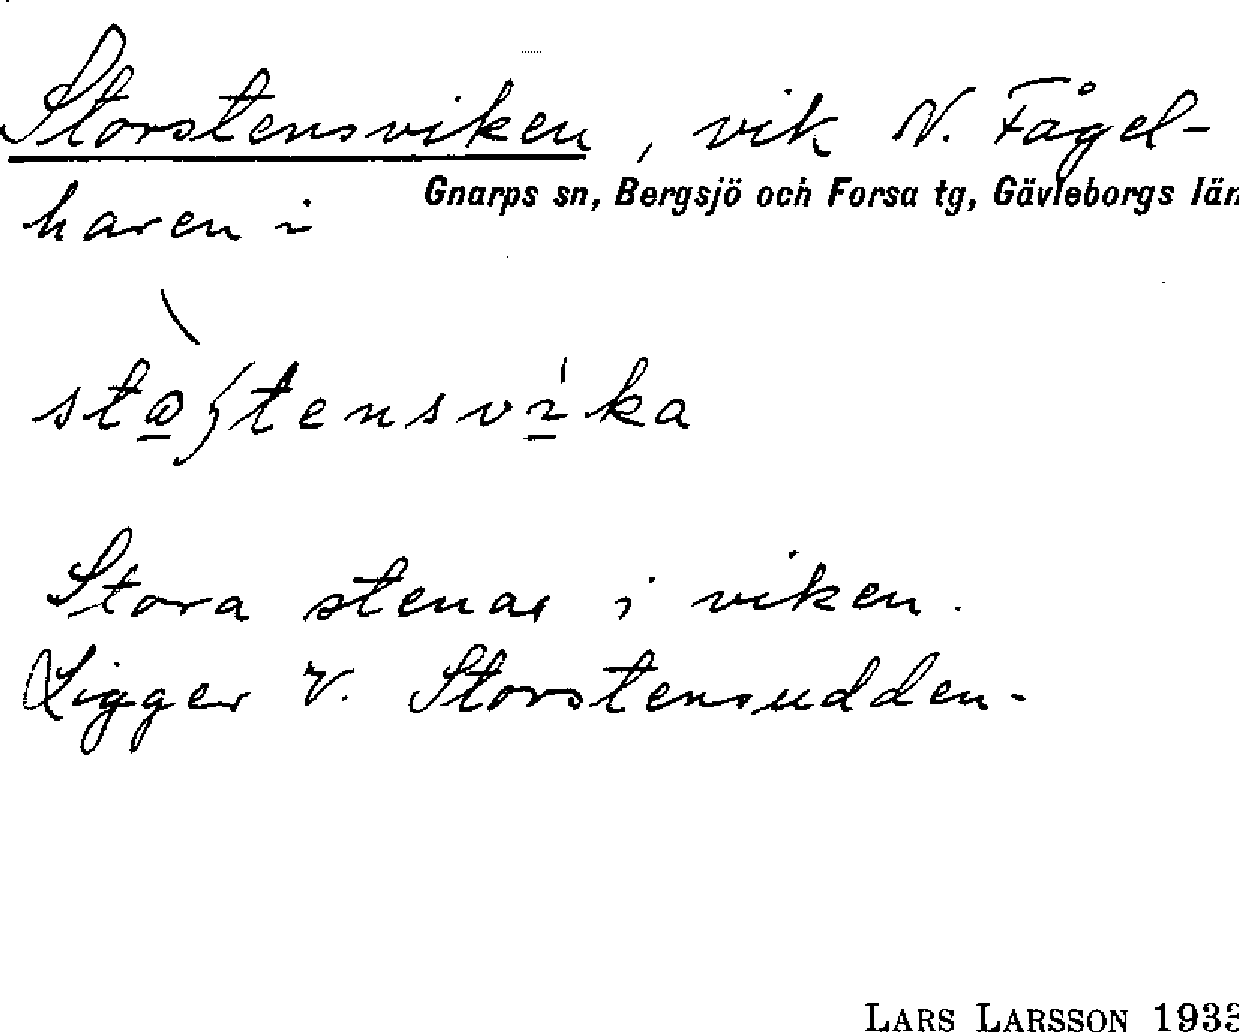 Storstensviken, vik N. Fågel-
Gnarps sn, Bergsjö och Forsa tg, Gävleborgs län
haren i
Stora stenar i viken.
Ligger V. Storstensudden.
LARS LARSSON 1933